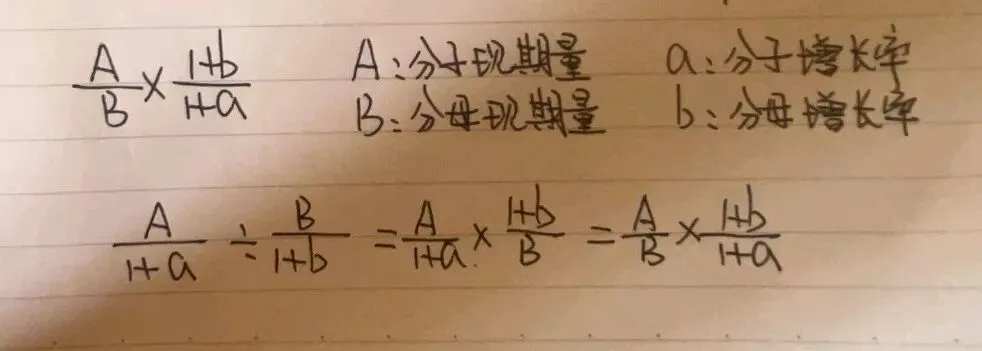 A/B × 1+b/1+a A:分子现期量 a:分子增长率
B:分母现期量 b:分母增长率
A/1+a ÷ B/1+b = A/1+a × 1+b/B = A/B × 1+b/1+a